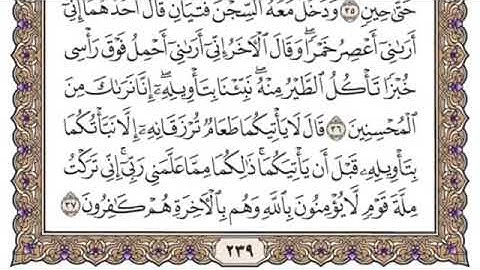 حَتَّىٰ حِينٍ ٣٥ وَدَخَلَ مَعَهُ ٱلسِّجْنَ فَتَيَانِ قَالَ أَحَدُهُمَآ إِنِّىٓ
أَرَىٰنِىٓ أَعْصِرُ خَمْرًا وَقَالَ ٱلْـَٔاخَرُ إِنِّىٓ أَرَىٰنِىٓ أَحْمِلُ فَوْقَ رَأْسِى
خُبْزًا تَأْكُلُ ٱلطَّيْرُ مِنْهُ نَبِّئْنَا بِتَأْوِيلِهِۦٓ إِنَّا نَرَىٰكَ مِنَ
ٱلْمُحْسِنِينَ ٣٦ قَالَ لَا يَأْتِيكُمَا طَعَامٌ تُرْزَقَانِهِۦٓ إِلَّا نَبَّأْتُكُمَا
بِتَأْوِيلِهِۦ قَبْلَ أَن يَأْتِيَكُمَا ۚ ذَٰلِكُمَا مِمَّا عَلَّمَنِى رَبِّىٓ ۚ إِنِّى تَرَكْتُ
مِلَّةَ قَوْمٍ لَّا يُؤْمِنُونَ بِٱللَّهِ وَهُم بِٱلْـَٔاخِرَةِ هُمْ كَـٰفِرُونَ ٣٧
٢٣٩